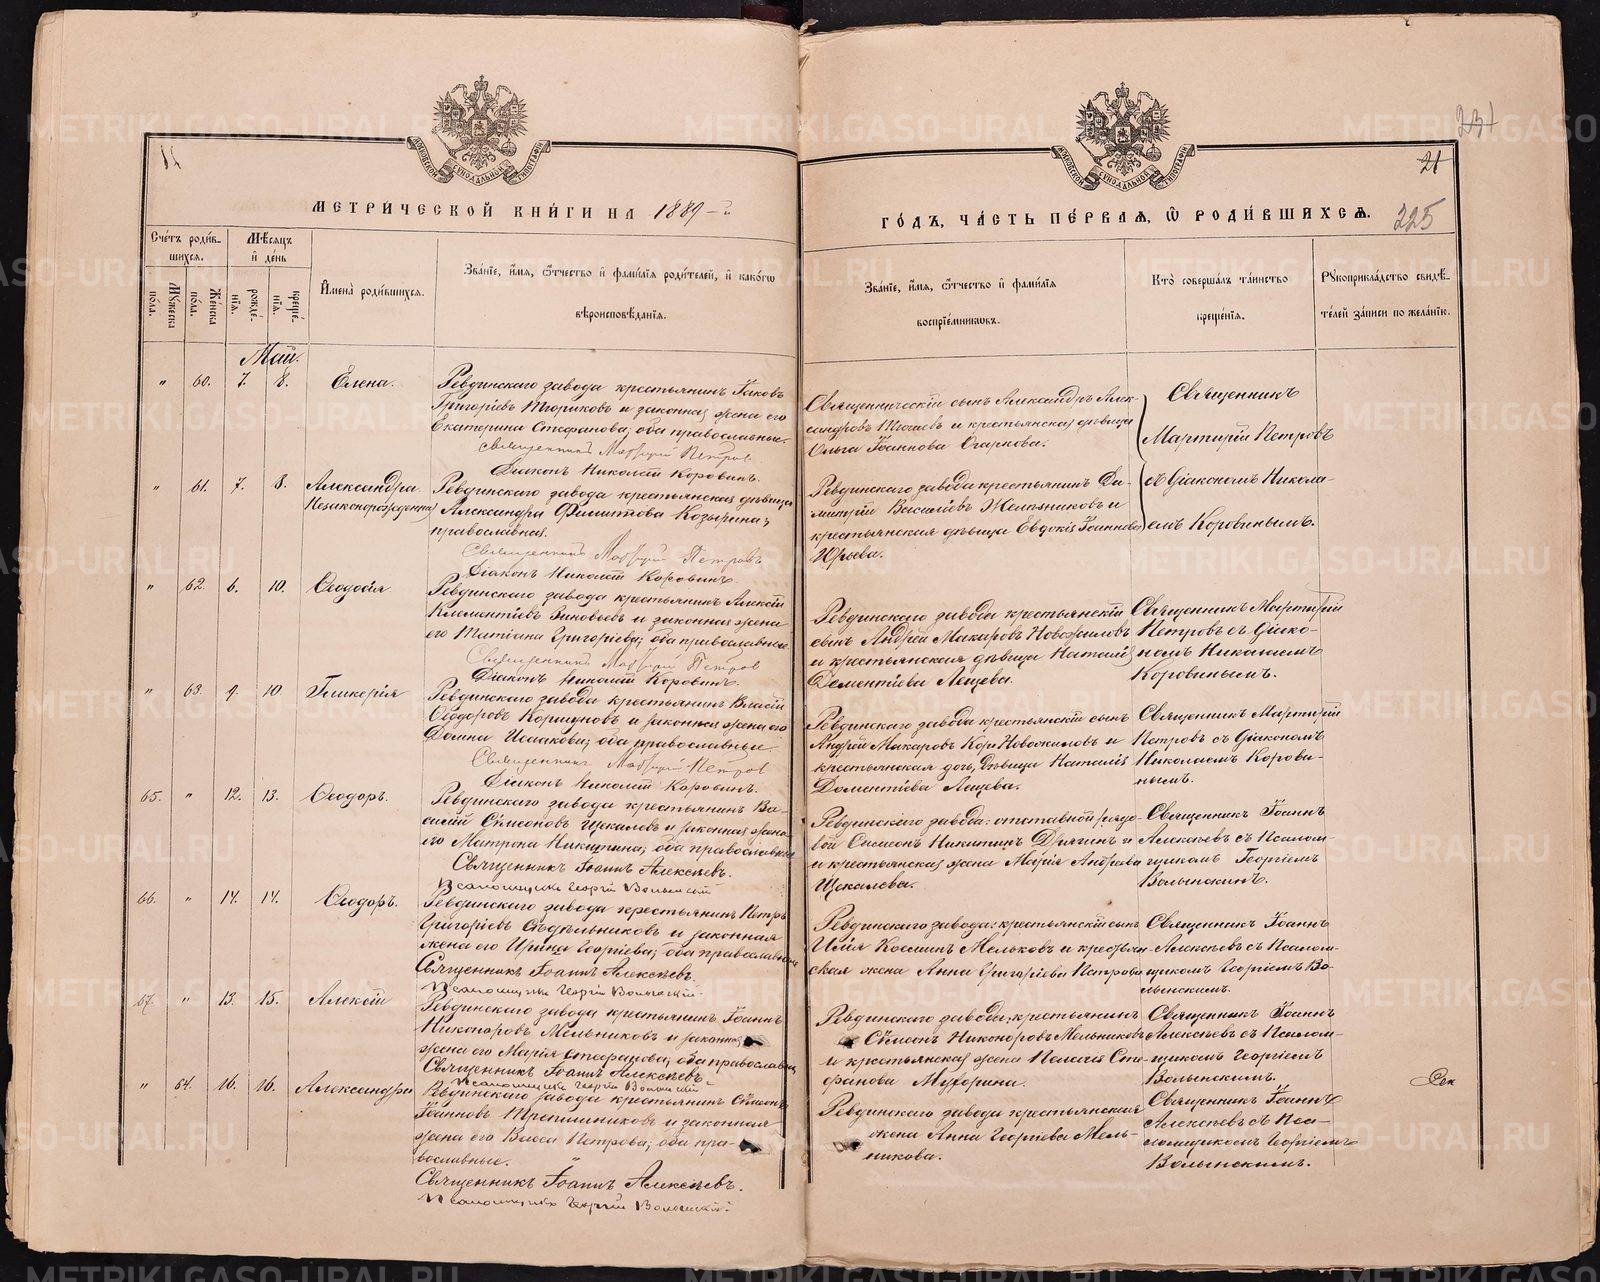 231
21
21
МОСКОВСКОЙ СѴНОДАЛЬНОЙ ТИПОГРАФІИ
МОСКОВСКОЙ СѴНОДАЛЬНОЙ ТИПОГРАФІИ
МЕТРИЧЕСКОЙ КНИГИ НА 1889-й
ГОДЪ, ЧАСТЬ ПЕРВАЯ, Ѿ РОДИВШИХСЯ.
225
Счетъ родив-
шихся.
Мужеска
пола.
Женска
пола.
Мѣсяцъ
и день
рожде-
нія.
креще-
нія.
Имена родившихся.
Званіе, имя, отчество и фамилія родителей, и какого
вѣроисповѣданія.
Званіе, имя, отчество и фамилія
воспріемниковъ.
Кто совершалъ таинство
крещенія.
Рукоприкладство свидѣ-
телей записи по желанію.
Май.
" 60. 7. 8. Елена.
Ревдинскаго завода крестьянинъ Іаковъ
Григоріевъ и законная жена его
Екатерина Стефанова; оба православные.
Священникъ Мартирій Петровъ
Діаконъ Николай Коровинъ.
Священническій сынъ Александръ Алек-
сандровъ и крестьянская дѣвица
Ольга Іоаннова Огаркова.
Священникъ
Мартирій Петровъ
съ Діакономъ Никола-
емъ Коровинымъ.
" 61. 7. 8. Александра
Незаконорожденная
Ревдинскаго завода крестьянская дѣвица
Александра Филиппова Козырина;
православная.
Священникъ Мартирій Петровъ
Діаконъ Николай Коровинъ.
Ревдинскаго завода крестьянинъ Ди-
митрій Василіевъ и
крестьянская дѣвица Евдокія Іоаннова
Юрьева.
" 62. 6. 10. Ѳеодосія
Ревдинскаго завода крестьянинъ Алексій
Климентіевъ Зиновьевъ и законная жена
его Татіана Григоріева; оба православные
Священникъ Мартирій Петровъ
Діаконъ Николай Коровинъ.
Ревдинскаго завода крестьянскій
сынъ Андрей Макаровъ Новожиловъ
и крестьянская дѣвица Наталія
Дементіева Лещева.
Священникъ Мартирій
Петровъ съ Діако-
номъ Николаемъ
Коровинымъ.
" 63. 9. 10 Гликерія
Ревдинскаго завода крестьянинъ Власій
Ѳеодоровъ Коршуновъ и законная жена его
Домна Исаакова; оба православные
Священникъ Мартирій Петровъ
Діаконъ Николай Коровинъ.
Ревдинскаго завода крестьянскій сынъ
Андрей Макаровъ Новожиловъ и
крестьянская дочь, дѣвица Наталія
Доментіева Лещева.
Священникъ Мартирій
Петровъ съ Діакономъ
Николаемъ Корови-
нымъ.
65. " 12. 13. Ѳеодоръ.
Ревдинскаго завода крестьянинъ Ва-
силій Сѵмеоновъ Щекалевъ и законная жена
его Матрона Никитина; оба православные
Священникъ Іоаннъ Алексѣевъ.
Псаломщикъ Георгій Волынскій
Ревдинскаго завода: отставной рядо-
вой Симеонъ Никитинъ Дрягинъ
и крестьянская жена Марія Андреева
Щекалева.
Священникъ Іоаннъ
Алексѣевъ съ Псалом-
щикомъ Георгіемъ
Волынскимъ.
66. " 14. 14. Ѳеодоръ.
Ревдинскаго завода крестьянинъ Петръ
Григоріевъ Сѣдѣльниковъ и законная
жена его Ирина Георгіева; оба православные
Священникъ Іоаннъ Алексѣевъ
Псаломщикъ Георгій Волынскій.
Ревдинскаго завода: крестьянскій сынъ
Илія Косминъ Мельковъ и крестьян-
ская жена Анна Григоріева Петрова
Священникъ Іоаннъ
Алексѣевъ съ Псалом-
щикомъ Георгіемъ Во-
лынскимъ.
67. " 13. 15. Алексій
Ревдинскаго завода крестьянинъ Іоаннъ
Никоноровъ Мельниковъ и законная
жена его Марія Стефанова; оба православны
Священникъ Іоаннъ Алексѣевъ
Псаломщикъ Георгій Волынскій
Ревдинскаго завода; крестьянинъ
Сѵмеонъ Никоноровъ Мельниковъ
и крестьянская жена Пелагія Сте-
фанова Мухорина.
Священникъ Іоаннъ
Алексѣевъ съ Псалом-
щикомъ Георгіемъ
Волынскимъ.
" 64. 16. 16. Александра
Ревдинскаго завода крестьянинъ Сѵмеонъ
Іоанновъ и законная
жена его Васса Петрова; оба пра-
вославные.
Священникъ Іоаннъ Алексѣевъ.
Псаломщикъ Георгій Волынскій.
Ревдинскаго завода крестьянская
жена Анна Георгіева Мель-
никова.
Священникъ Іоаннъ
Алексѣевъ съ Пса-
ломщикомъ Георгіемъ
Волынскимъ.
METRIKI.GASO-URAL.RU